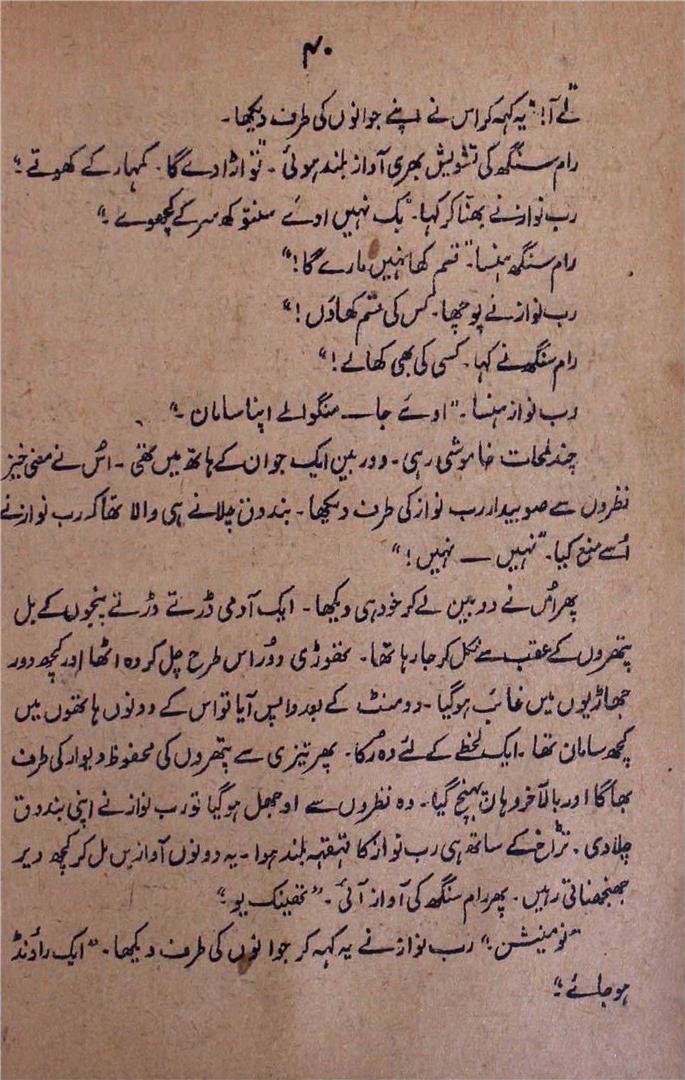 ۴۰
لے آ!" یہ کہہ کر اس نے اپنے جوانوں کی طرف دیکھا۔
رام سنگھ کی تشویش بھری آواز بلند ہوئی۔ "تو اڑا دے گا۔ کمہار کے کھوتے۔"
رب نواز نے بھنّا کر کہا۔ "بک نہیں اوئے سنتوکھ سر کے کچھوے۔"
رام سنگھ ہنسا۔ "قسم کھا نہیں مارے گا!"
رب نواز نے پوچھا۔ "کس کی قسم کھاؤں!"
رام سنگھ نے کہا۔ "کسی کی بھی کھا لے!"
رب نواز ہنسا۔ "اوئے جا — منگوا لے اپنا سامان۔"
چند لمحات خاموشی رہی۔ دوربین ایک جوان کے ہاتھ میں تھی۔ اُس نے معنی خیز
نظروں سے صوبیدار رب نواز کی طرف دیکھا۔ بندوق چلانے ہی والا تھا کہ رب نواز نے
اُسے منع کیا۔ "نہیں — نہیں!"
پھر اُس نے دوربین لے کر خود ہی دیکھا۔ ایک آدمی ڈرتے ڈرتے پنجوں کے بل
پتھروں کے عقب سے نکل کر جا رہا تھا۔ تھوڑی دور اس طرح چل کر وہ اٹھا اور کچھ دور
جھاڑیوں میں غائب ہو گیا۔ دو منٹ کے بعد واپس آیا تو اس کے دونوں ہاتھوں میں
کچھ سامان تھا۔ ایک لحظے کے لئے وہ رُکا۔ پھر تیزی سے پتھروں کی محفوظ دیوار کی طرف
بھاگا اور بالآخر وہاں پہنچ گیا۔ وہ نظروں سے اوجھل ہو گیا تو رب نواز نے اپنی بندوق
چلا دی۔ تڑاخ کے ساتھ ہی رب نواز کا قہقہہ بلند ہوا۔ یہ دونوں آوازیں مل کر کچھ دیر
جھنجھناتی رہیں۔ پھر رام سنگھ کی آواز آئی۔ "تھینک یو۔"
"نو مینشن۔" رب نواز نے یہ کہہ کر جوانوں کی طرف دیکھا۔ "ایک راؤنڈ
ہو جائے۔"